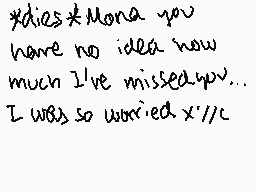 *dies* Mona you
have no idea how
much I've missed you...
I was so worried x'//c